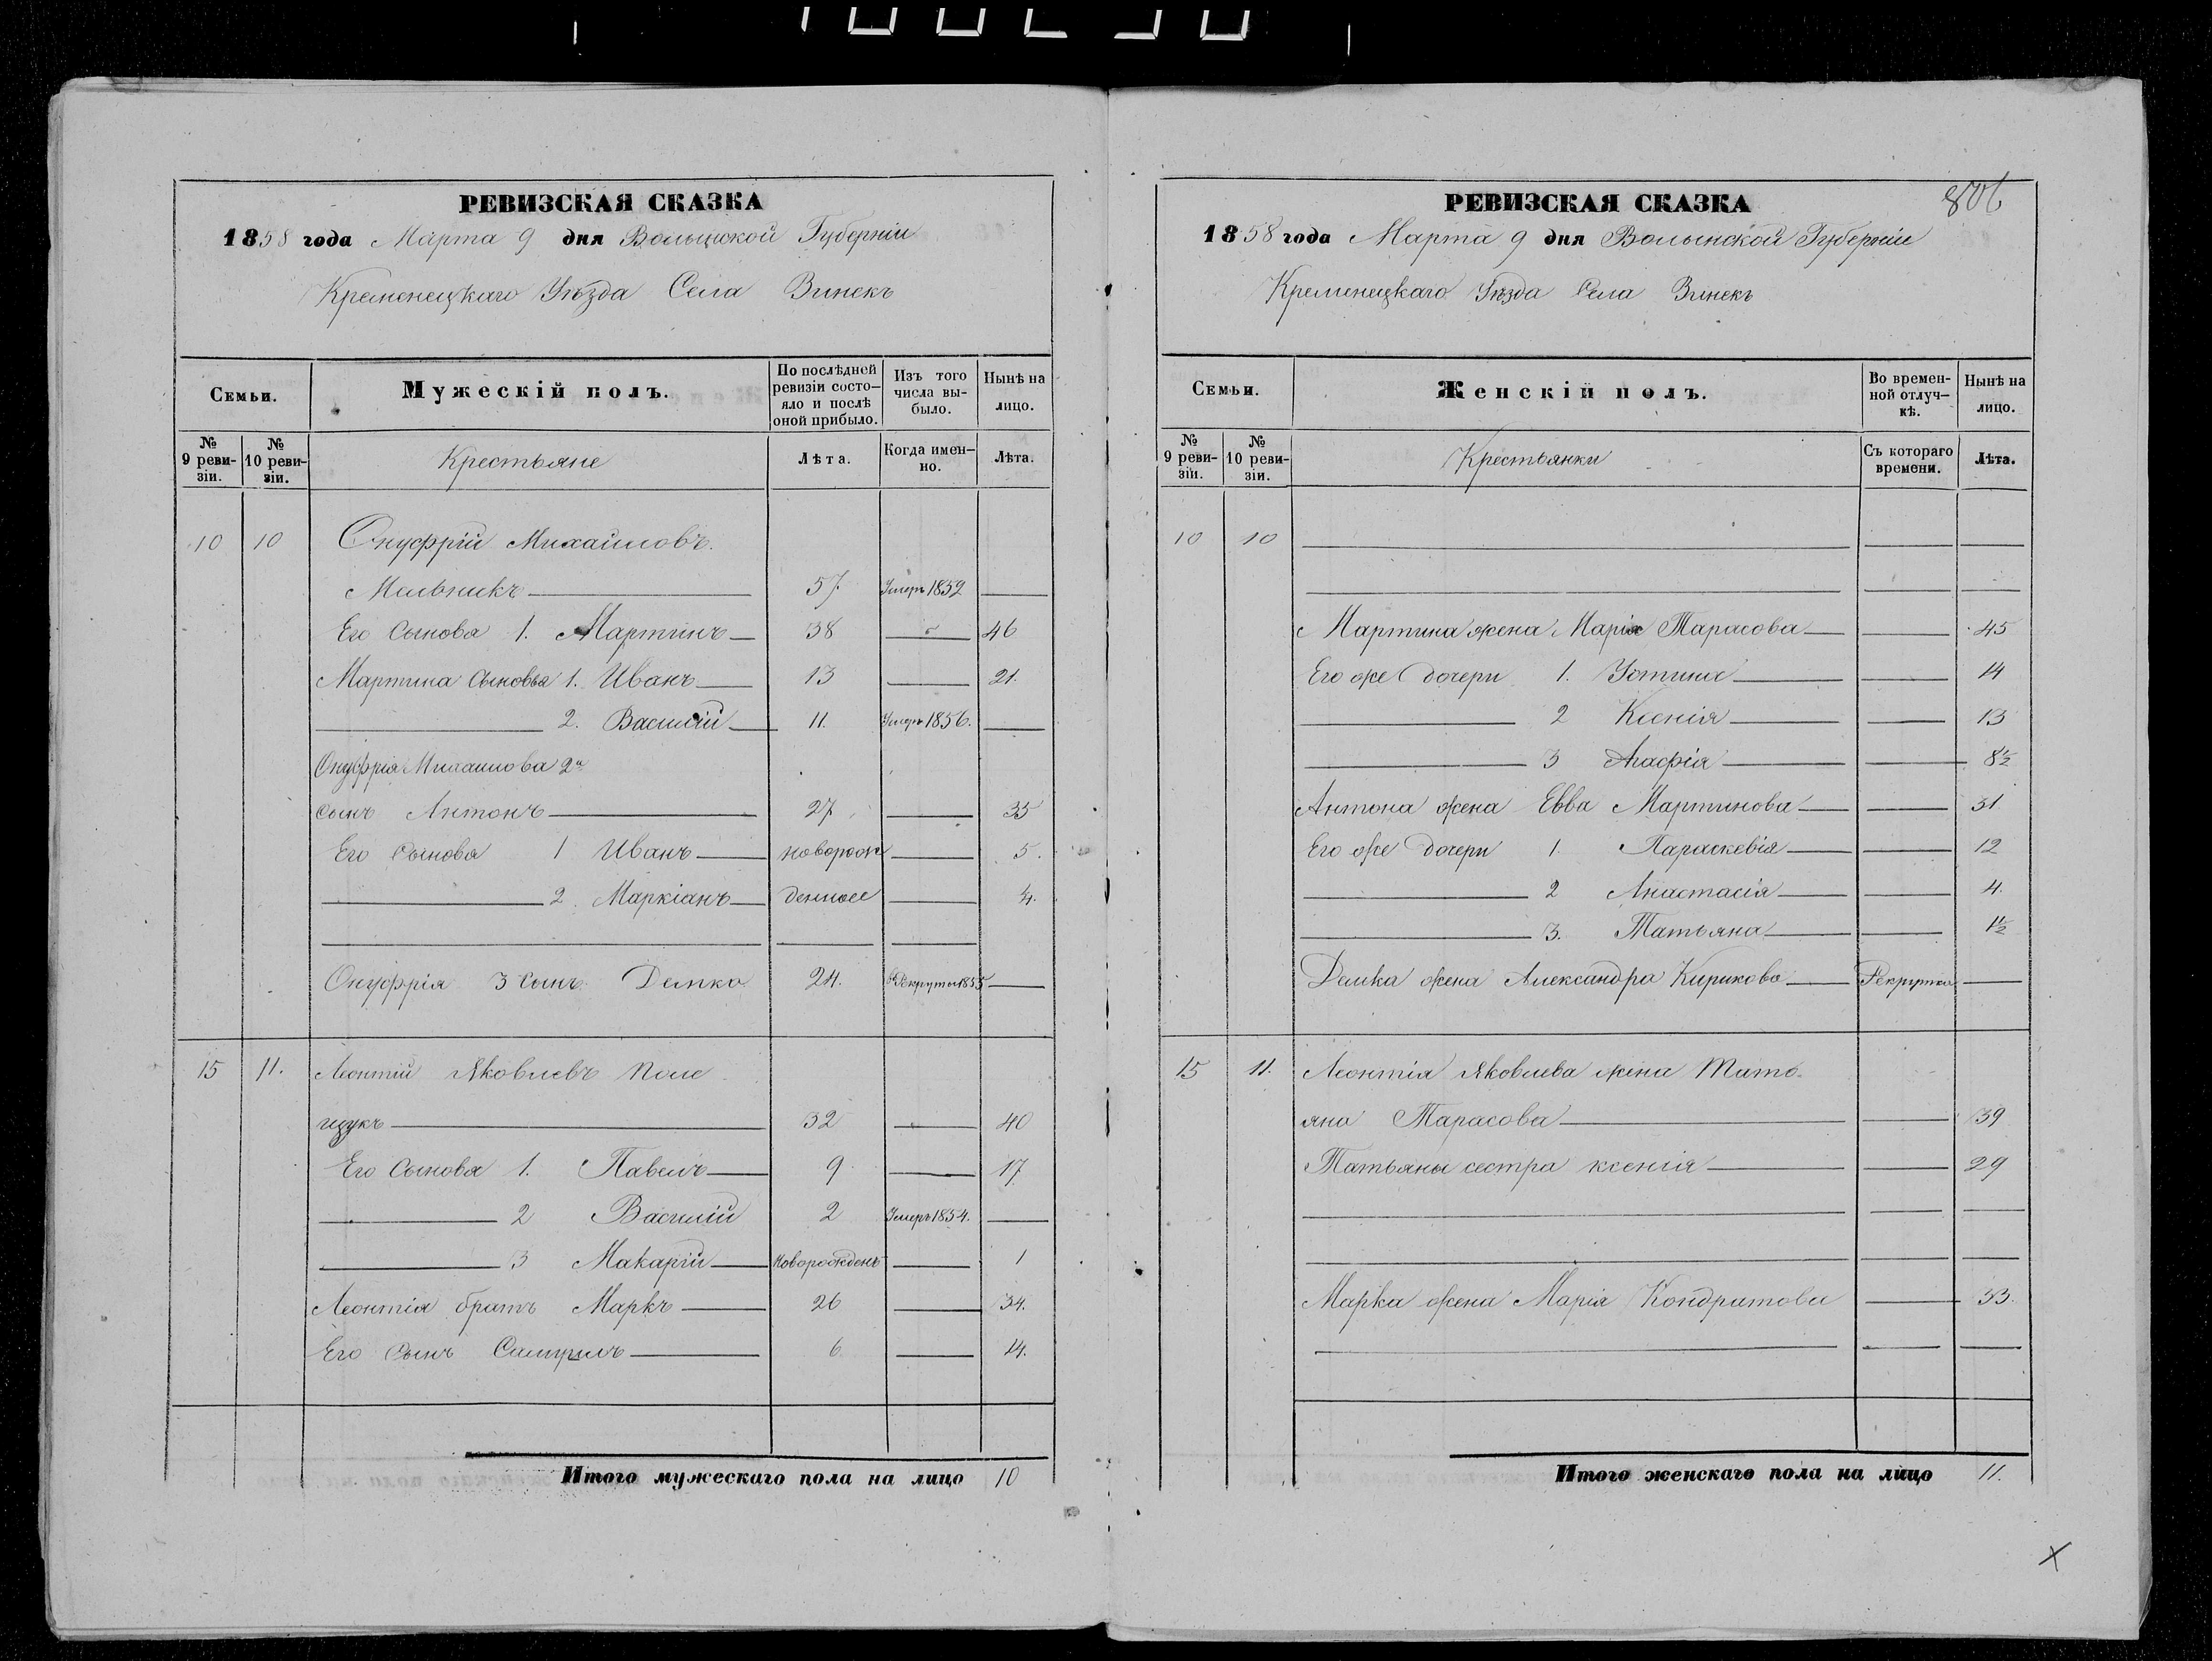 РЕВИЗСКАЯ СКАЗКА
1858 года Марта 9 дня Волынской Губерніи
Кременецкаго Уѣзда Села Винекъ
Семьи.
Мужескій полъ.
По послѣдней ревизіи состо-
яло и послѣ оной прибыло.
Изъ того числа вы-
было.
Нынѣ на лицо.
№ 9 реви-
зіи.
№ 10 реви-
зіи.
Крестьяне
Лѣта.
Когда имен-
но.
Лѣта.
10 10 Онуфрій Михайловъ.
Мельникъ 57. Умеръ 1852
Его Сыновья 1. Мартинъ 38 46
Мартина Сыновья 1. Иванъ 13 21.
2. Василій 11. Умеръ 1856.
Онуфрія Михаилова 2й
сынъ Антонъ 27. 35
Его Сыновья 1 Иванъ новорож 5.
2. Маркіанъ денные 4.
Онуфрія 3 Сынъ Демко 24. в Рекруты 1855
15 11. Леонтій Яковлевъ Поле
щукъ 32 40
Его Сыновья 1. Павелъ 9 17
2 Василій 2 Умеръ 1854.
3 Макарій Новорожденъ 1
Леонтія братъ Маркъ 26 34.
Его Сынъ Самуилъ 6. 14.
Итого мужескаго пола на лицо 10
806
РЕВИЗСКАЯ СКАЗКА
1858 года Марта 9 дня Волынской Губерніи
Кременецкаго Уѣзда Села Винекъ
Семьи.
Женскій полъ.
Во времен-
ной отлуч-
кѣ.
Нынѣ на лицо.
№ 9 реви-
зіи.
№ 10 реви-
зіи.
Крестьянки
Съ котораго времени.
Лѣта.
10 10
Мартина жена Марія Тарасова 45
Его же Дочери 1. Устина 14
2 Ксенія 13
3 Агафія 8½
Антона жена Евва Мартинова 31
Его же Дочери 1. Параскевія 12
2 Анастасія 4.
3. Татьяна 1½
Демка жена Александра Кирикова Рекрутка
15 11. Леонтія Яковлева жена Тать-
яна Тарасова 39
Татьяны сестра ксенія 29
Марка жена Марія Кондратова 33.
Итого женскаго пола на лицо 11.